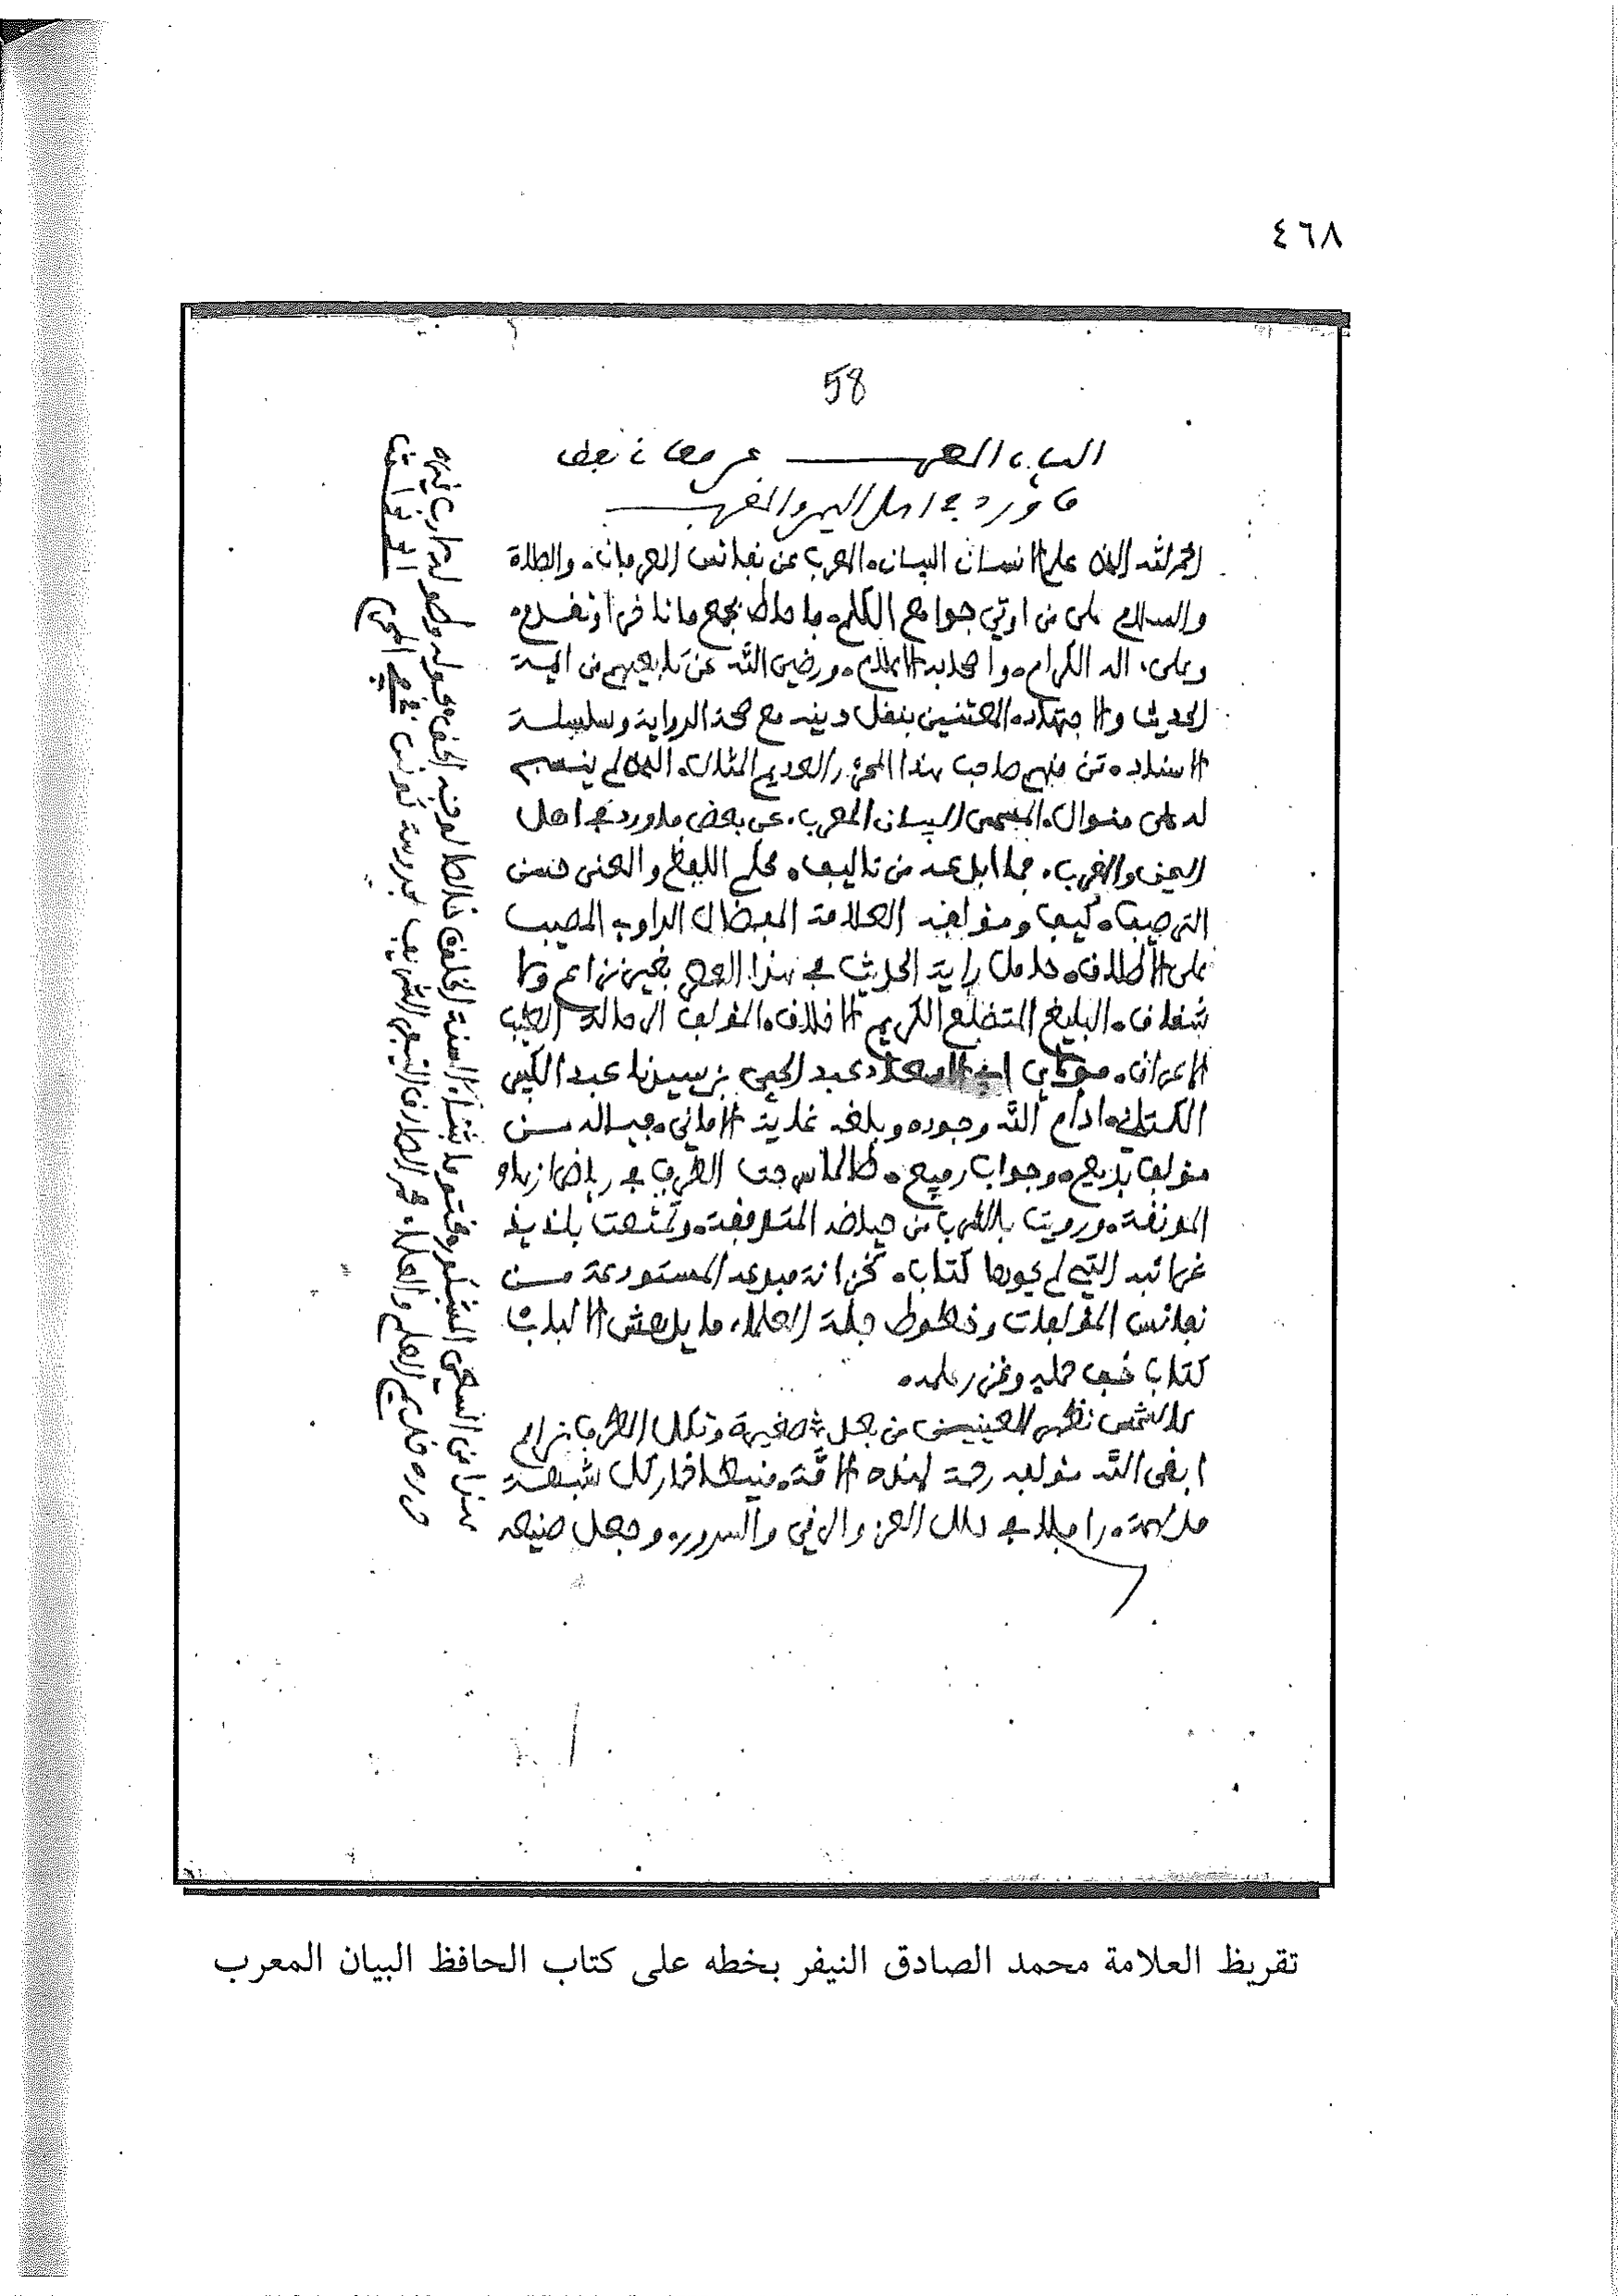 ٤٦٨
58
البيان المعرب عن معاني بعض
ما ورد في اهل اليمن والمغرب
الحمد لله الذي علم الانسان البيان، المعرب عن نفائس العرفان، والصلاة
والسلام على من اوتي جوامع الكلم، فاحاط بجمع ما تاخر او تقدم،
وعلى ءاله الكرام، واصحابه الاعلام، ورضي الله عن تابعيهم من ايمة
الحديث والاجتهاد، المعتنين بنقل دينه مع صحة الرواية وسلسلة
الاسناد، منهم صاحب هذا المحرر العديم المثال، الذي لم ينسج
له على منوال، المسمى البيان المعرب، عن بعض ما ورد في اهل
اليمن والمغرب، من تاليف، محكم اللفظ والمعنى حسن
الترصيف، كيف ومؤلفه العلامة المفضال الراوية المصيب
على الاطلاق، حامل راية الحديث في هذا العصر بغير نزاع ولا
شقاق، البليغ المتضلع الكريم الاخلاق، المؤلف الرحالة الطيب
الاعراق، مولاي عبد الحي بن سيدنا عبد الكبير
الكتاني، ادام الله وجوده وبلغه غاية الاماني، فياله من
مؤلف بديع، وجواب رفيع، طالما سرحت الطرف في رياض ازهاره
المونقة، ورويت بالشرب من حياضه المتدفقة، وتمتعت بلذيذ
غرائبه التي لم يحوها كتاب، خزانة مبدعه المستودعة من
نفائس المؤلفات وخطوط جلة العلماء ما يدهش الالباب
كتاب خف حمله وغزر علمه،
كالشمس تظهر للعينين من بعد صغيرة وتكل الطرف من امم
ابقى الله مؤلفه رحمة لهذه الامة، منيرا كل شبهة
مدلهمة، رافلا في حلل العز والهنى والسرور، وجعل صنيعه
هذا من السعي المشكور،
درره خادم العلم والعلماء محمد الصادق النيفر الشريف مدرسة تونس
تقريظ العلامة محمد الصادق النيفر بخطه على كتاب الحافظ البيان المعرب